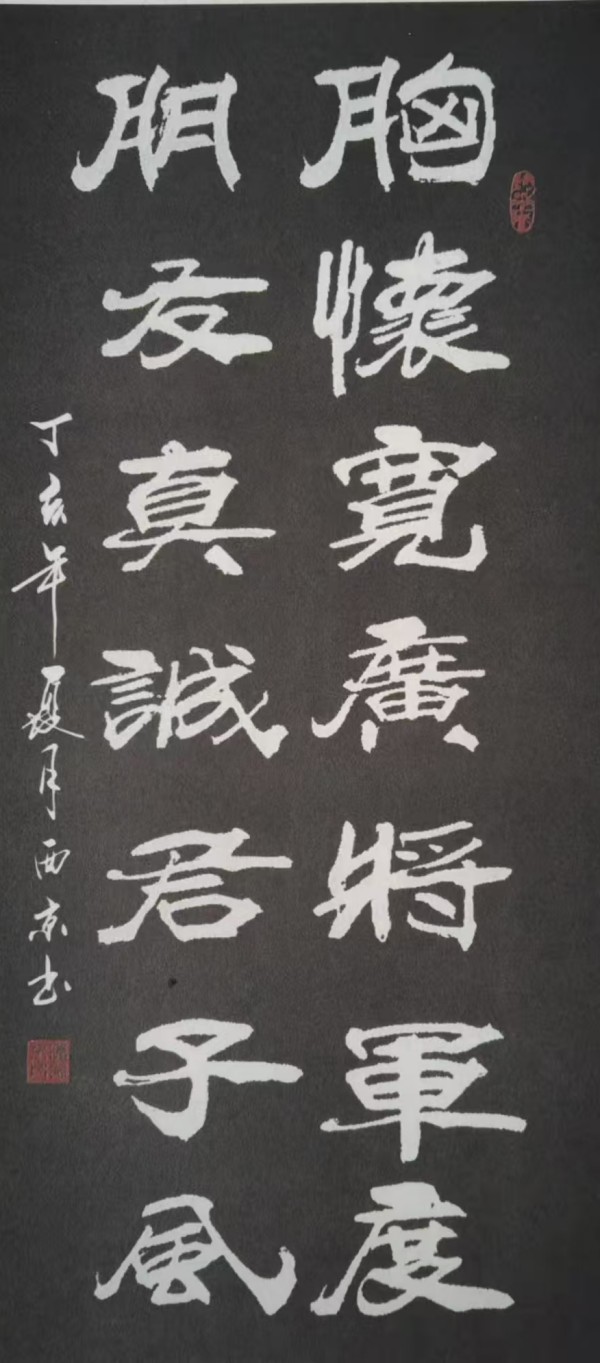 胸懷寬廣將軍度
朋友真誠君子風
丁亥年夏月西京书